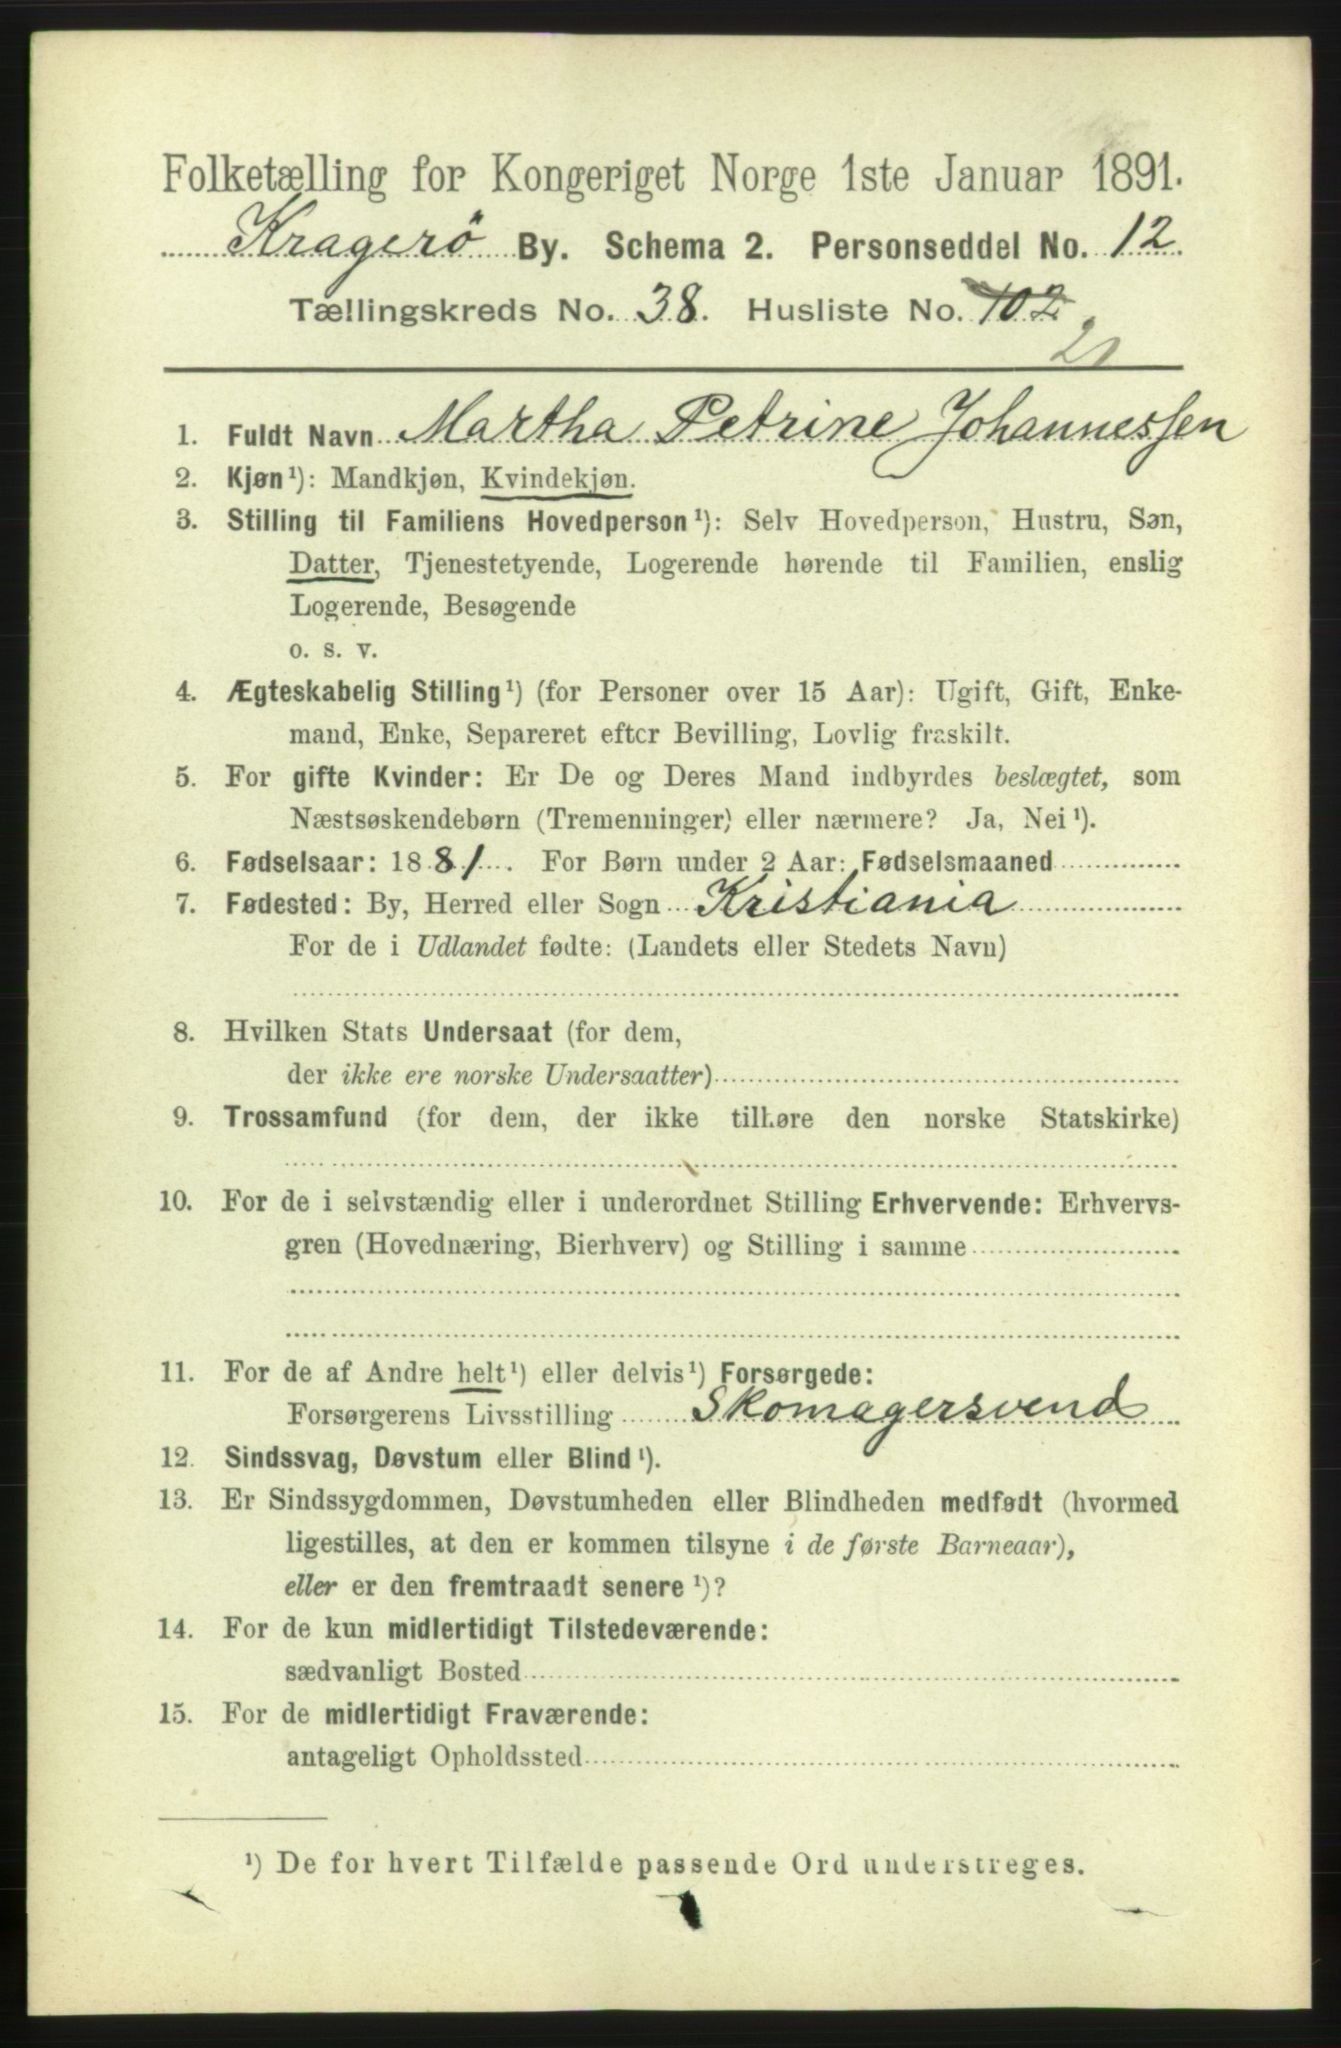 Folketælling for Kongeriget Norge 1ste Januar 1891.
Kragerö By. Schema 2. Personseddel No. 12
Tællingskreds No. 38. Husliste No. 102
21
1. Fuldt Navn Martha Petrine Johannessen
2. Kjøn¹): Mandkjøn, Kvindekjøn.
3. Stilling til Familiens Hovedperson¹): Selv Hovedperson, Hustru, Søn,
Datter, Tjenestetyende, Logerende hørende til Familien, enslig
Logerende, Besøgende
o. s. v.
4. Ægteskabelig Stilling¹) (for Personer over 15 Aar): Ugift, Gift, Enke-
mand, Enke, Separeret efter Bevilling, Lovlig fraskilt.
5. For gifte Kvinder: Er De og Deres Mand indbyrdes beslægtet, som
Næstsøskendebørn (Tremenninger) eller nærmere? Ja, Nei¹).
6. Fødselsaar: 1881. For Børn under 2 Aar: Fødselsmaaned
7. Fødested: By, Herred eller Sogn Kristiania
For de i Udlandet fødte: (Landets eller Stedets Navn)
8. Hvilken Stats Undersaat (for dem,
der ikke ere norske Undersaatter)
9. Trossamfund (for dem, der ikke tilhøre den norske Statskirke)
10. For de i selvstændig eller i underordnet Stilling Erhvervende: Erhvervs-
gren (Hovednæring, Bierhverv) og Stilling i samme
11. For de af Andre helt¹) eller delvis¹) Forsørgede:
Forsørgerens Livsstilling Skomagersvend
12. Sindssvag, Døvstum eller Blind¹).
13. Er Sindssygdommen, Døvstumheden eller Blindheden medfødt (hvormed
ligestilles, at den er kommen tilsyne i de første Barneaar),
eller er den fremtraadt senere¹)?
14. For de kun midlertidigt Tilstedeværende:
sædvanligt Bosted
15. For de midlertidigt Fraværende:
antageligt Opholdssted
¹) De for hvert Tilfælde passende Ord understreges.